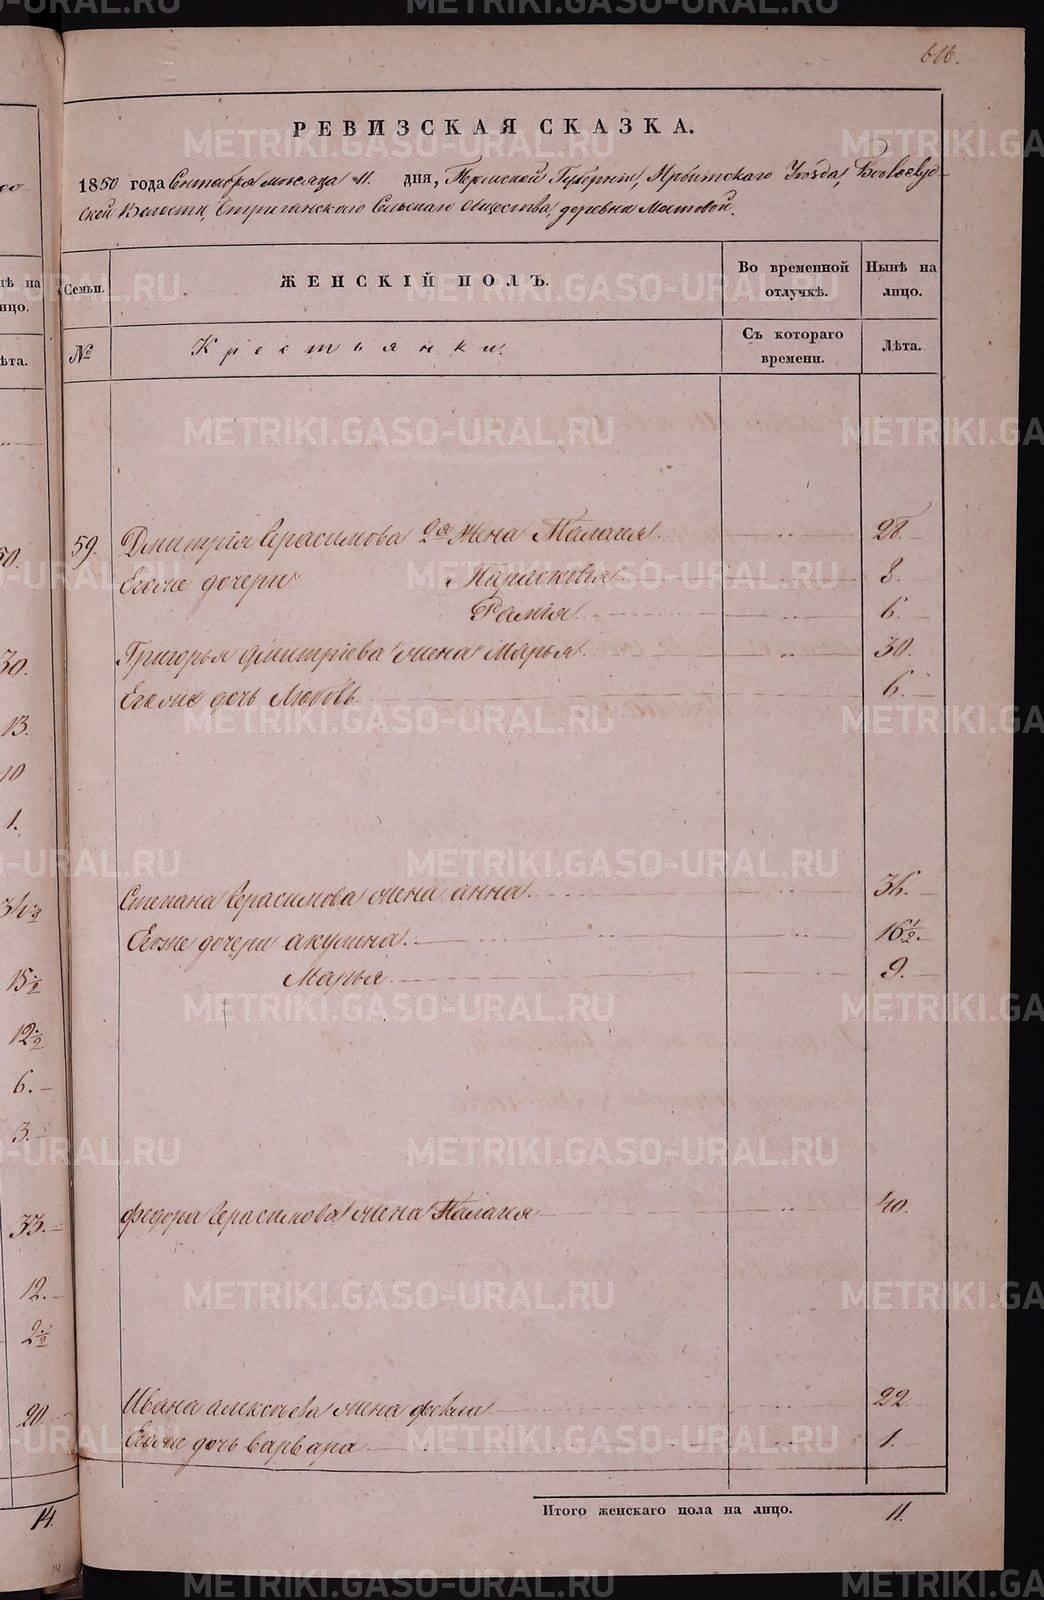 616.
РЕВИЗСКАЯ СКАЗКА.
1850 года Сентября месяца 11. дня, Пермской Губерніи, Ирбитскаго Уѣзда,
ской Волости, Стриганскаго Сельскаго Общества, деревни Мостовой.
Семьи. ЖЕНСКІЙ ПОЛЪ. Во временной отлучкѣ. Нынѣ на лицо.
№ Крестьянки. Съ котораго времени. Лѣта.
59. Дмитрія Герасимова 2я жена Палагея 28.
Егоже дочери Парасковья 8.
6.
Григорья Дмитріева жена Марья 30.
Егоже дочь Любовь 6.
Степана Герасимова жена анна 36.
Егоже дочери акулина 16 1/2.
Марья 9.
федора Герасимова жена Палагея 40.
Ивана алексѣева жена фекла 22
Егоже дочь варвара 1.
Итого женскаго пола на лицо. 11.
нѣ на
ицо.
ѣта.
50.
30.
13.
10
1.
15 1/2
12 1/2
6.
3.
33.
12.
2 1/2
20.
14.
METRIKI.GASO-URAL.RU